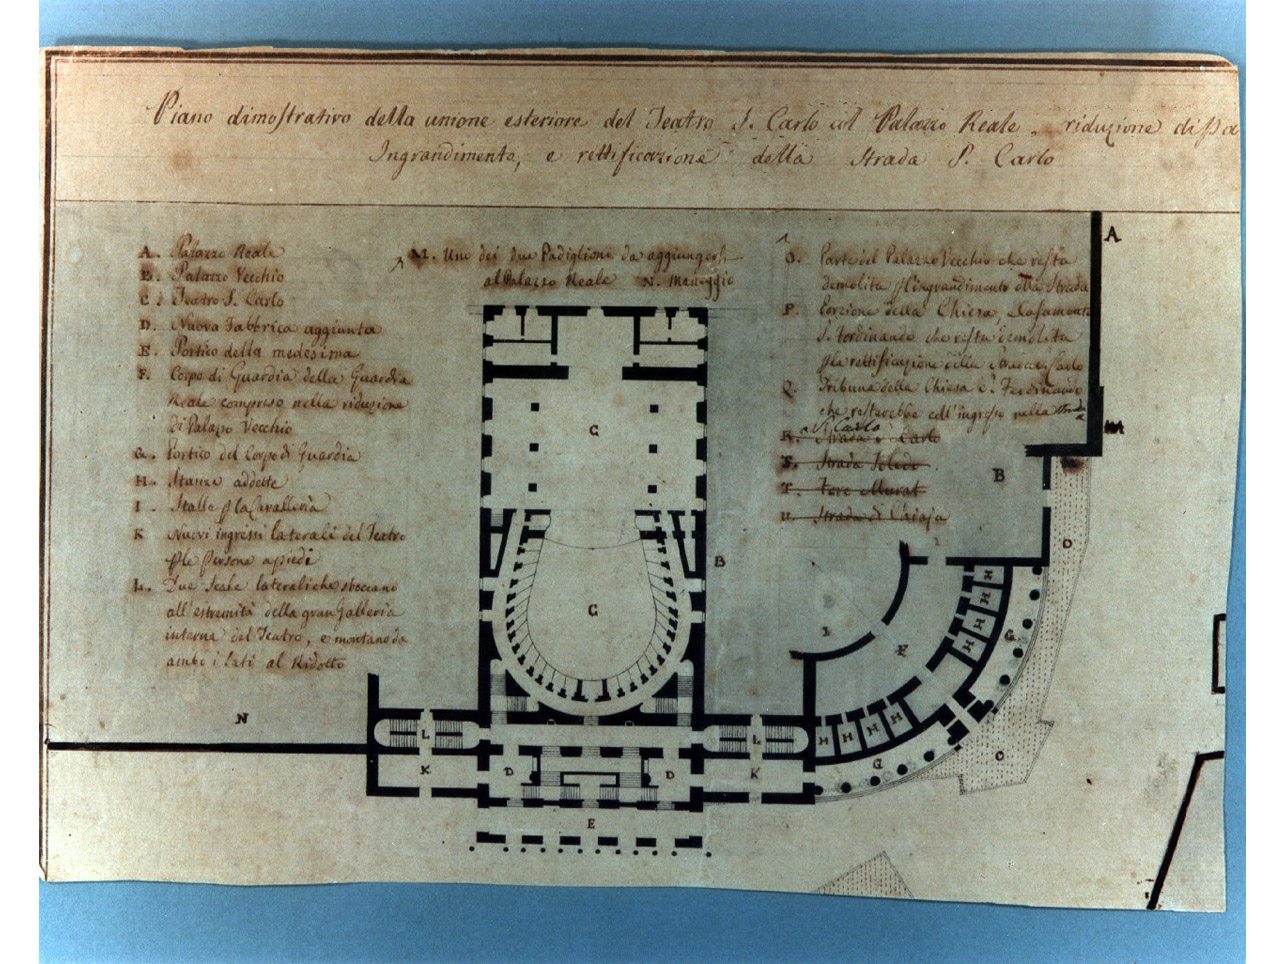 Piano dimostrativo della unione esteriore del Teatro S. Carlo col Palazzo Reale, riduzione di
Ingrandimento, e rettificazione della Strada S. Carlo
A. Palazzo Reale
B. Palazzo Vecchio
C. Teatro S. Carlo
D. Nuova Fabbrica aggiunta
E. Portico della medesima
F. Corpo di Guardia della Guardia
Reale compreso nella riduzione
di Palazzo Vecchio
G. Portico del Corpo di Guardia
H. Stanze addette
I. Stalle p la Cavalleria
K Nuovi ingressi laterali del Teatro
p le Persone a piedi
L. Due Scale laterali che sboccano
all'estremità della gran Galleria
interna del Teatro, e montano da
ambo i lati al Ridotto
M. Uno dei due Padiglioni da aggiungersi
al Palazzo Reale N. Maneggio
O. Parte del Palazzo Vecchio che resta
demolita p l'ingrandimento della Strada
P. Porzione della Chiesa, e
S. Ferdinando che resta demolita
p la rettificazione della Carlo
Q. Tribuna della Chiesa S. Ferdinando
che resterebbe coll'ingresso nella Strada
S. Carlo
R. Strada S. Carlo
S. Strada Toledo
T. Foro Murat
U. Strada di Chiaja
A
M
B
D
B
C
C
I
F
H
H
H
H
G
H
H
H
H
G
O
N
L
K
D
D
L
K
E